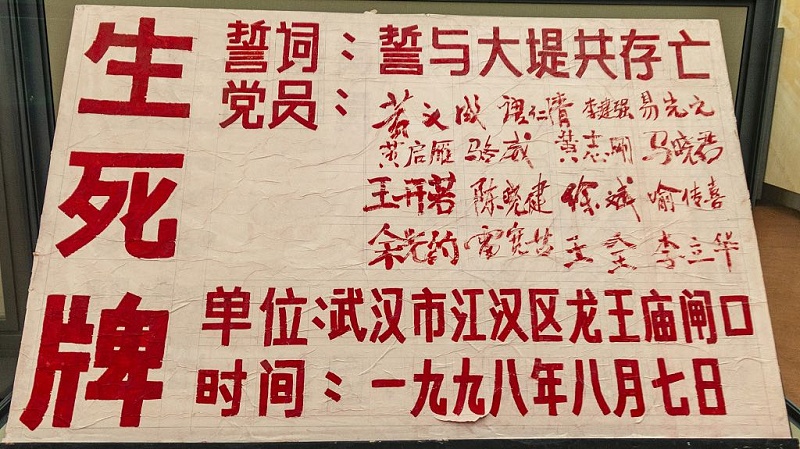 生死牌
誓词：誓与大堤共存亡
党员：
黄义成 唐仁清 李建强 易光元
黄启雁 骆威 黄志刚 马晓君
王开若 陈晓建 徐斌 喻传喜
余光约 王全 李立华
单位：武汉市江汉区龙王庙闸口
时间：一九九八年八月七日